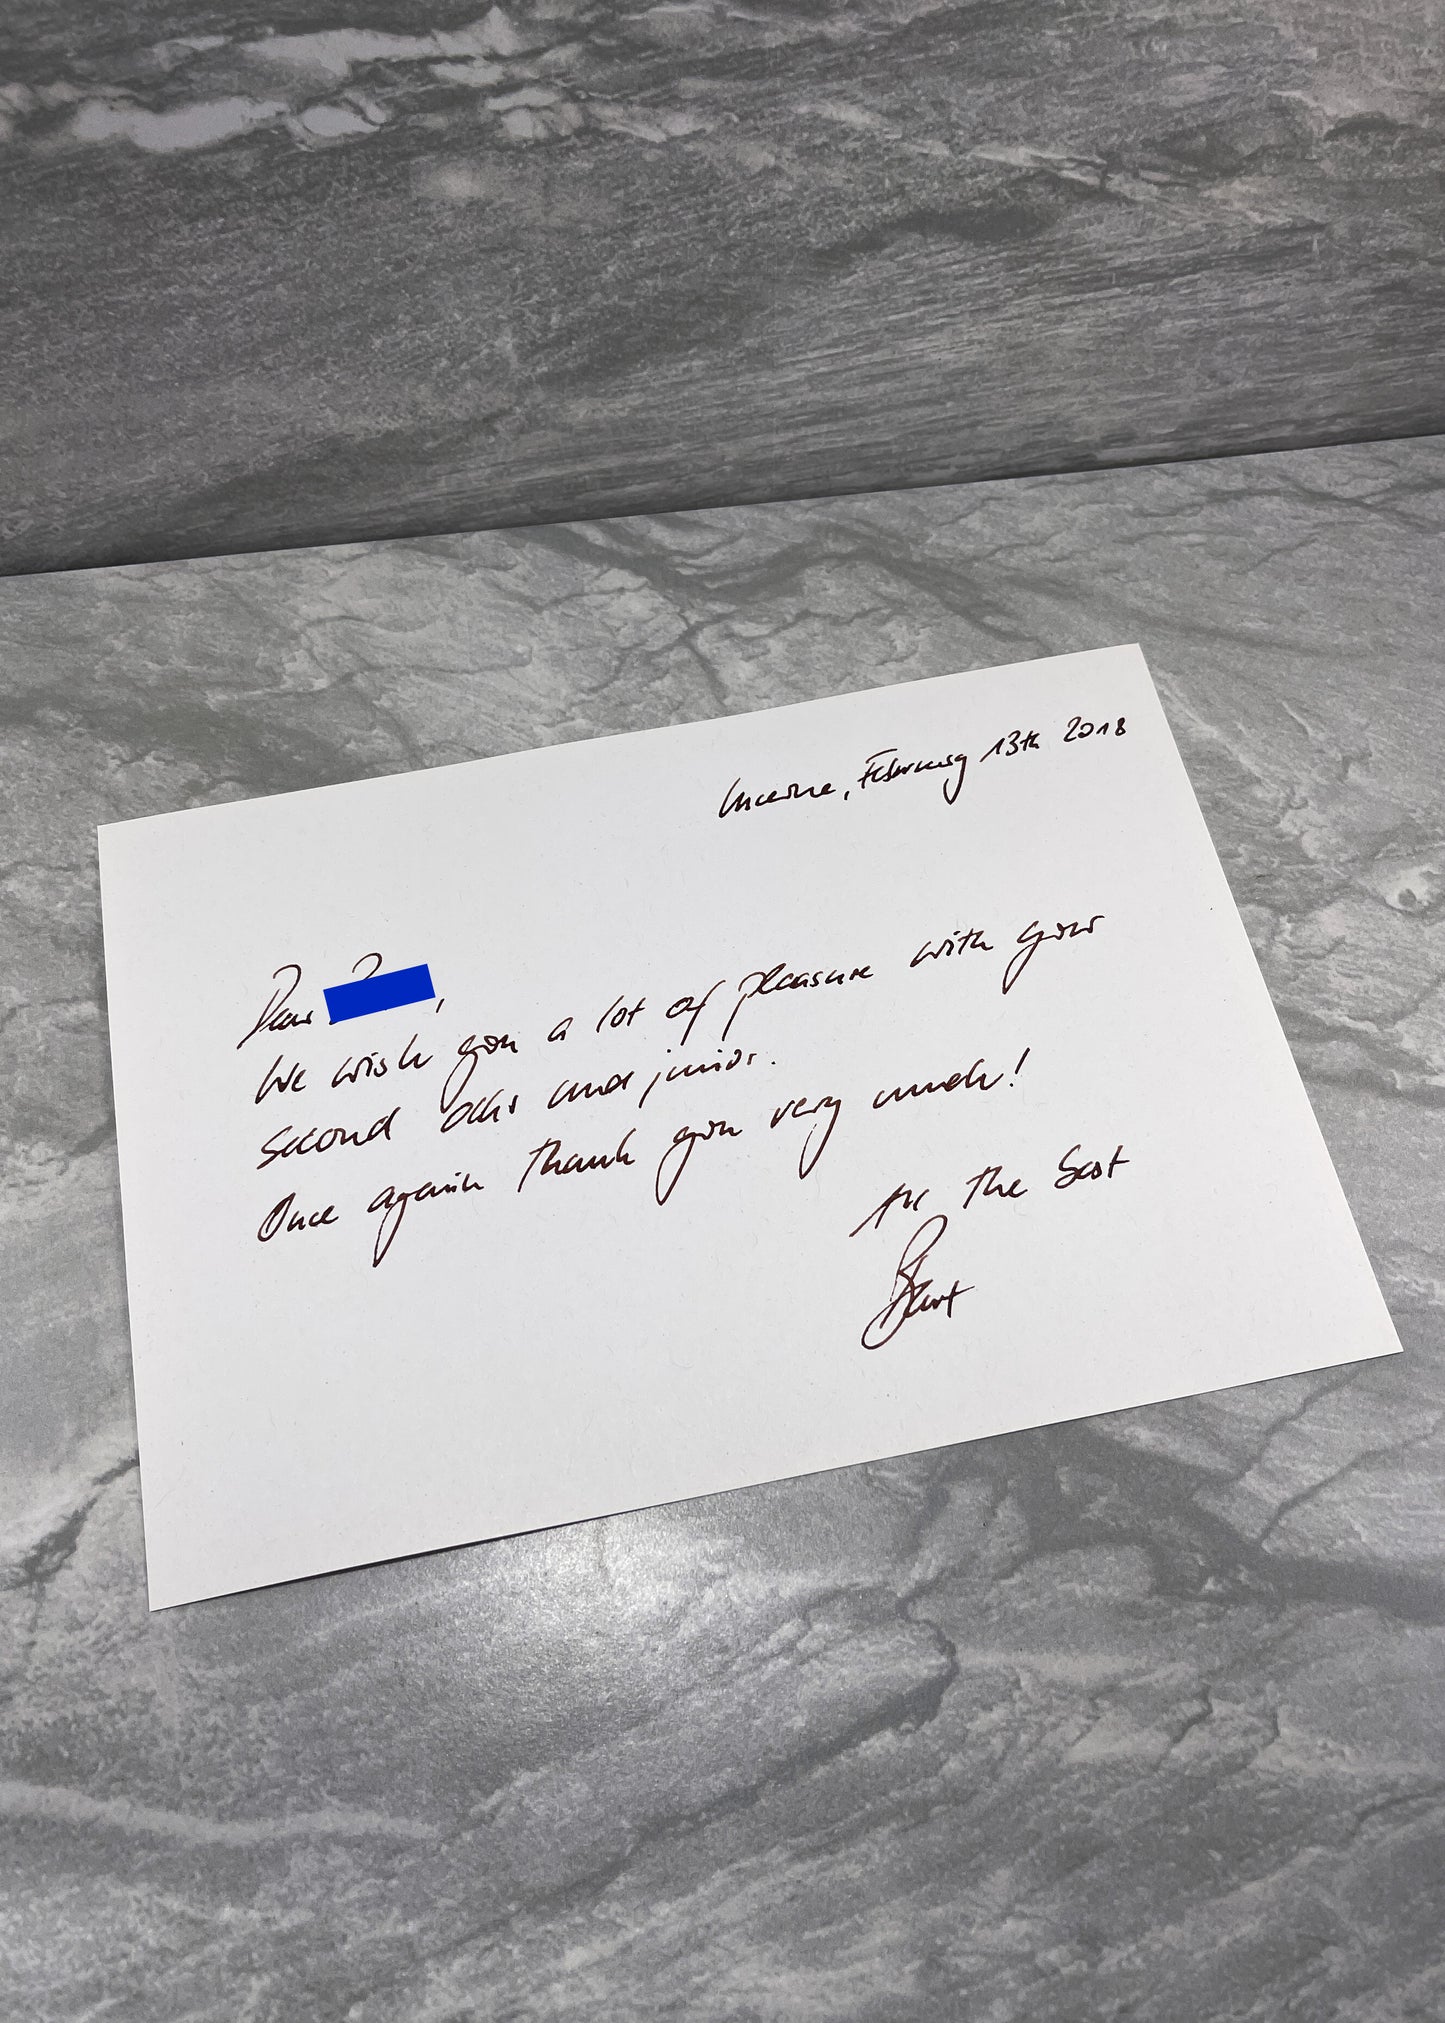 Lucerne, February 13th 2018
Dear
We wish you a lot of pleasure with your
second ochs und junior.
Once again thank you very much!
All the best
Beat